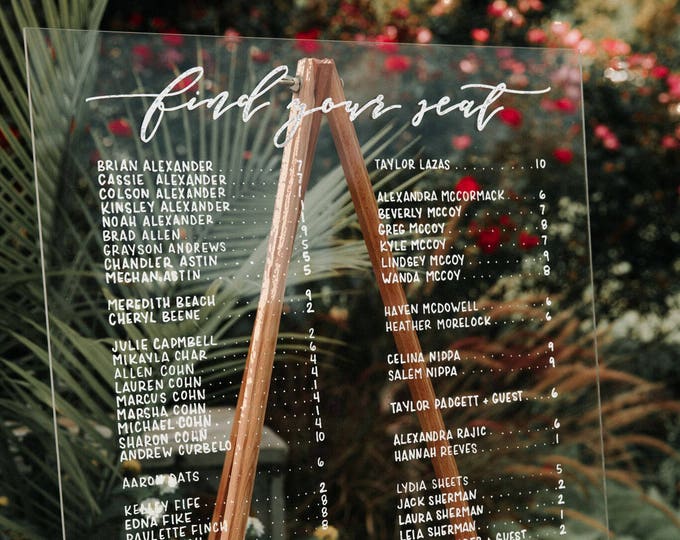 find your seat
BRIAN ALEXANDER 7
CASSIE ALEXANDER 7
COLSON ALEXANDER
KINSLEY ALEXANDER
NOAH ALEXANDER 1
BRAD ALLEN 9
GRAYSON ANDREWS 5
CHANDLER ASTIN 5
MEGHAN ASTIN 5
MEREDITH BEACH 9
CHERYL BEENE 2
JULIE CADMBELL 2
MIKAYLA CHAR 6
ALLEN COHN 4
LAUREN COHN 4
MARCUS COHN 4
MARSHA COHN 4
MICHAEL COHN
SHARON COHN 4
ANDREW CURBELO 10
AARON OATS 6
KELLEY FIFE 2
EDNA FIKE 8
PAULETTE FINCH 8
TAYLOR LAZAS 10
ALEXANDRA MCCORMACK 6
BEVERLY MCCOY 7
GREG MCCOY 8
KYLE MCCOY 7
LINDSEY MCCOY 9
WANDA MCCOY 8
HAVEN MCDOWELL 6
HEATHER MORELOCK 6
CELINA NIPPA 9
SALEM NIPPA 9
TAYLOR PADGETT + GUEST 6
ALEXANDRA RAJIC 6
HANNAH REEVES 1
LYDIA SHEETS 5
JACK SHERMAN 2
LAURA SHERMAN 1
LEIA SHERMAN 1
+ GUEST 2